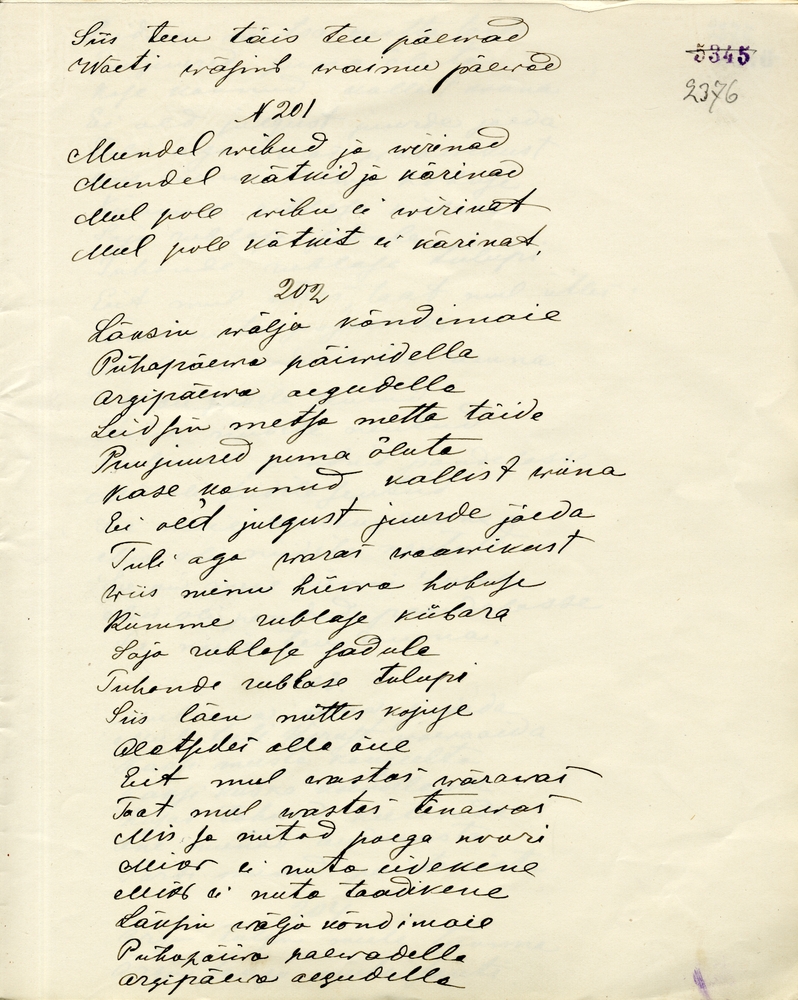 Siis teen täis teu päewad
Waeti wäsind waimu päewad
5345
2376
N 201
Mundel wibud ja wirinad
Mundel kätkid ja kärinad
Mul pole wibu ei wirinat
Mul pole kätkit ei kärinat.
202
Läksin wälja kõndimaie
Pühapäewa päiwidella
argipäewa aegudella
Leidsin metsa metta täide
Puujuured puna õluta
Kase kannud kallist wiina
Ei old julgust juurde jäeda
Tuli aga waras waawikust
wiis minu hüwa hobuse
Kümme rublase kübara
Saja rublase sadula
Tuhande rublase tulupi
Siis läen nuttes kojuje
alla õue
Eit mul wastas wärawas
Taat mul wastas tänawas
Mis sa nutad poega noori
ei nuta eidekene
ei nuta taadikene
Läksin wälja kõndimaie
Pühapäiwa paewadella
argipäewa aegudella